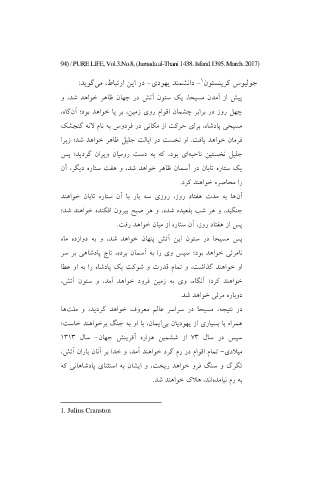 94) / PURE LIFE, Vol.3.No.8, (Jumada al-Thani 1438. Isfand 1395. March. 2017)
جولیوس کرینستون۱- دانشمند یهودی- در این ارتباط، می‌گوید:
پیش از آمدن مسیحا، یک ستون آتش در جهان ظاهر خواهد شد، و
چهل روز در برابر چشمان اقوام روی زمین، بر پا خواهد بود؛ آن‌گاه،
مسیحی پادشاه، برای حرکت از مکانی در فردوس به نام لانه گنجشک
فرمان خواهد یافت. او نخست در ایالت جلیل ظاهر خواهد شد؛ زیرا
جلیل نخستین ناحیه‌ای بود، که به دست رومیان ویران گردید؛ پس
یک ستاره تابان در آسمان ظاهر خواهد شد، و هفت ستاره دیگر، آن
را محاصره خواهند کرد.
آن‌ها به مدت هفتاد روز، روزی سه بار با آن ستاره تابان خواهند
جنگید، و هر شب بلعیده شده، و هر صبح بیرون افکنده خواهند شد؛
پس از هفتاد روز، آن ستاره از میان خواهد رفت.
پس مسیحا در ستون این آتش پنهان خواهد شد، و به دوازده ماه
نامرئی خواهد بود؛ سپس وی را به آسمان برده، تاج پادشاهی بر سر
او خواهند گذاشت، و تمام قدرت و شوکت یک پادشاه را به او عطا
خواهند کرد؛ آنگاه، وی به زمین فرود خواهد آمد، و ستون آتش،
دوباره مرئی خواهد شد.
در نتیجه، مسیحا در سراسر عالم معروف خواهد گردید، و ملت‌ها
همراه با بسیاری از یهودیان بی‌ایمان، با او به جنگ برخواهند خاست؛
سپس در سال ۷۳ از ششمین هزاره آفرینش جهان- سال ۱۳۱۳
میلادی- تمام اقوام در رم گرد خواهند آمد، و خدا بر آنان باران آتش،
تگرگ و سنگ فرو خواهد ریخت، و ایشان به استثنای پادشاهانی که
به رم نیامده‌اند، هلاک خواهند شد.
1. Julius Cranston